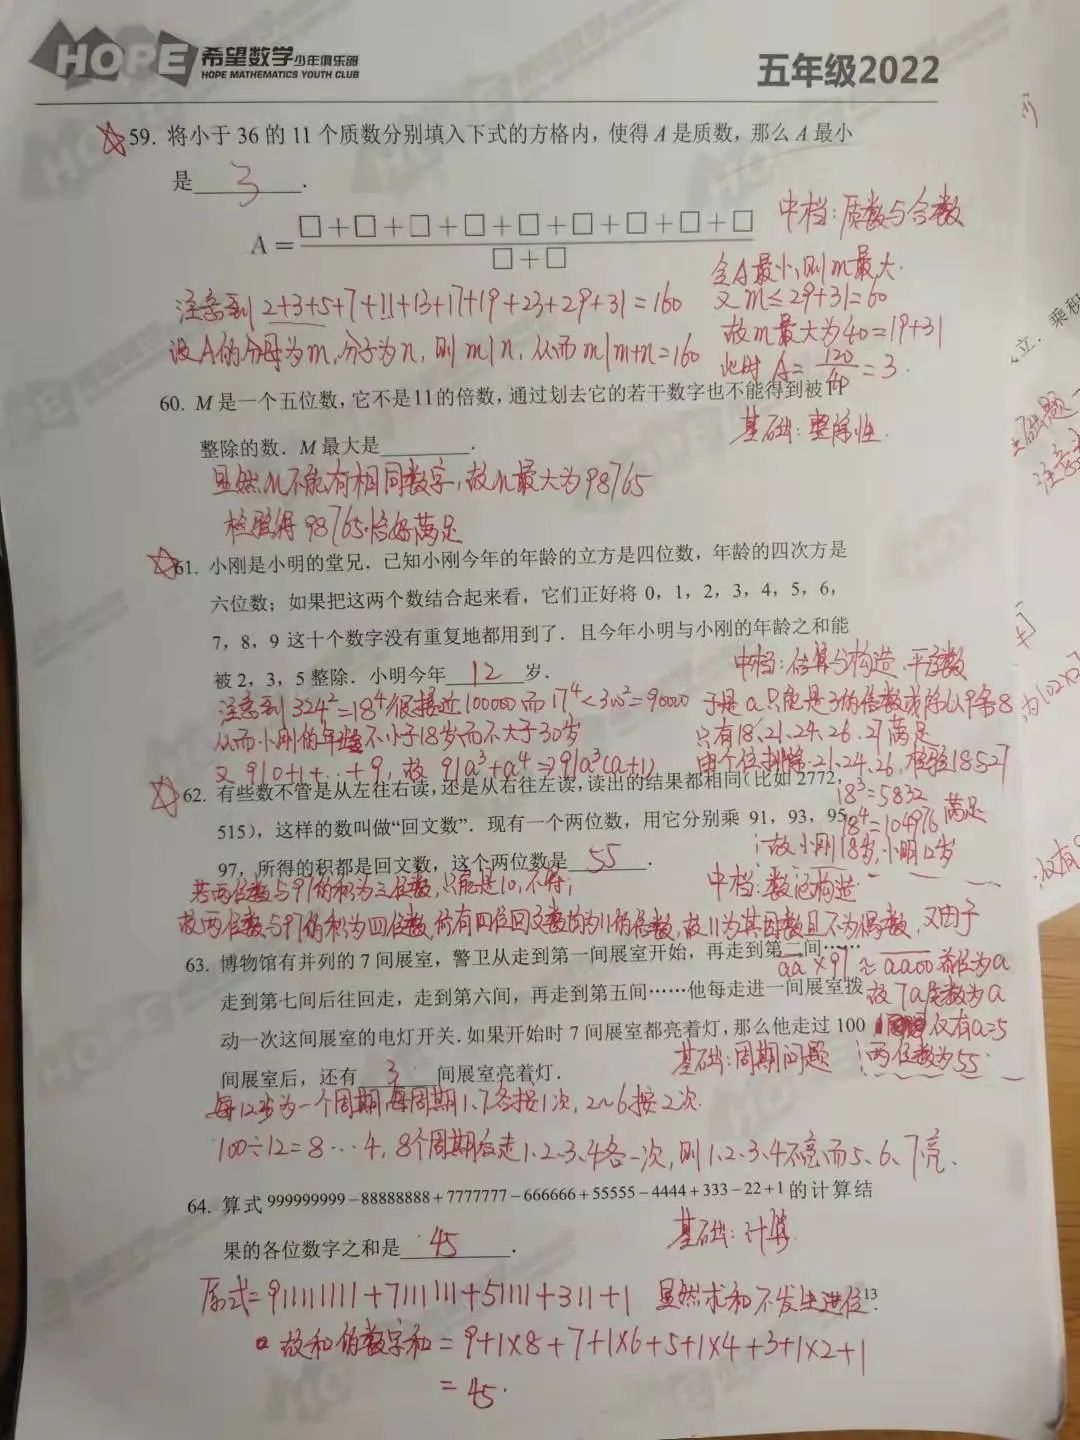 HOPE 希望数学 少年俱乐部
HOPE MATHEMATICS YOUTH CLUB
五年级2022
59. 将小于 36 的 11 个质数分别填入下式的方格内，使得 A 是质数，那么 A 最小
是 3 .
中档：质数与合数
A = □+□+□+□+□+□+□+□+□
□+□
令A最小，则m最大.
注意到 2+3+5+7+11+13+17+19+23+29+31=160
又 m≤29+31=60
设A的分母为m，分子为n，则 m|n，从而 m|m+n=160
故m最大为40=19+31
此时 A=120/40=3.
60. M 是一个五位数，它不是11的倍数，通过划去它的若干数字也不能得到被11
整除的数．M 最大是 .
基础：整除性.
显然M不能有相同数字，故M最大为98765
检验得 98765 恰好满足
61. 小刚是小明的堂兄．已知小刚今年的年龄的立方是四位数，年龄的四次方是
六位数；如果把这两个数结合起来看，它们正好将 0，1，2，3，4，5，6，
7，8，9 这十个数字没有重复地都用到了．且今年小明与小刚的年龄之和能
被 2，3，5 整除．小明今年 12 岁．
中档：估算与构造、平方数
注意到 324²=18⁴很接近100000而17⁴<300²=90000
于是a只能是3的倍数或除以9余8
从而小刚的年龄不小于18岁而不大于30岁
只有18、21、24、26、27满足
又 9|0+1+…+9，故 9|a³+a⁴⇒9|a³(a+1)
由个位排除21、24、26，检验18与27
18³=5832
18⁴=104976 满足
∴故小刚18岁，小明12岁
62. 有些数不管是从左往右读，还是从右往左读，读出的结果都相同(比如 2772，
515)，这样的数叫做“回文数”．现有一个两位数，用它分别乘 91，93，95，
97，所得的积都是回文数，这个两位数是 55 .
中档：数论构造
若两位数与91的积为三位数，只能是10，不符；
故两位数与97的积为四位数，所有四位回文数均为11的倍数，故11为其因数且不为偶数，又由于
aa×97≈aa00 首位为a
故7a尾数为a
仅有a=5
∴两位数为55.
63. 博物馆有并列的 7 间展室，警卫从走到第一间展室开始，再走到第二间……
走到第七间后往回走，走到第六间，再走到第五间……他每走进一间展室拨
动一次这间展室的电灯开关．如果开始时 7 间展室都亮着灯，那么他走过 100
间展室后，还有 3 间展室亮着灯．
基础：周期问题
每12步为一个周期，每周期1、7各按1次，2~6按2次.
100÷12=8…4，8个周期后走1、2、3、4各一次，则1、2、3、4不亮而5、6、7亮.
64. 算式 999999999－88888888＋7777777－666666＋55555－4444＋333－22＋1 的计算结
果的各位数字之和是 45 .
基础：计算
原式=911111111+7111111+51111+311+1 显然求和不发生进位
13
故和的数字和=9+1×8+7+1×6+5+1×4+3+1×2+1
=45.